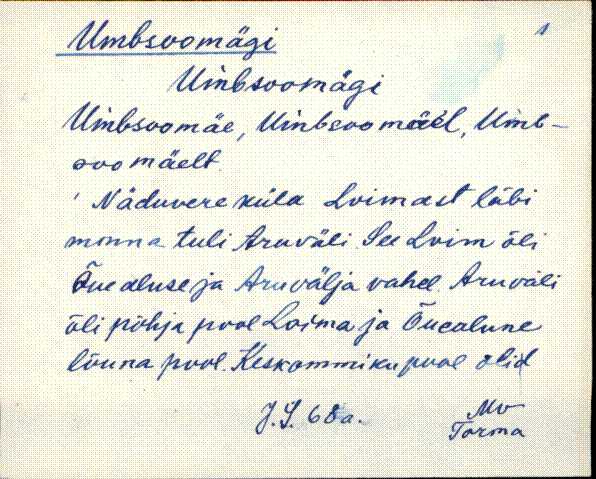 Umbsoomägi 1
Uinbsoomägi
Uimbsoomäe, Uinbsoomäel, Uimb-
soomäelt.
Näduvere küla Loimast läbi
minna tuli Aruväli. See Loim õli
Õuealuse ja Aruvälja vahel. Aruväli
õli põhja pool Loima ja Õuealune
lõuna pool. Keskommiku pool olid
J.S. 68a. MV
Torma